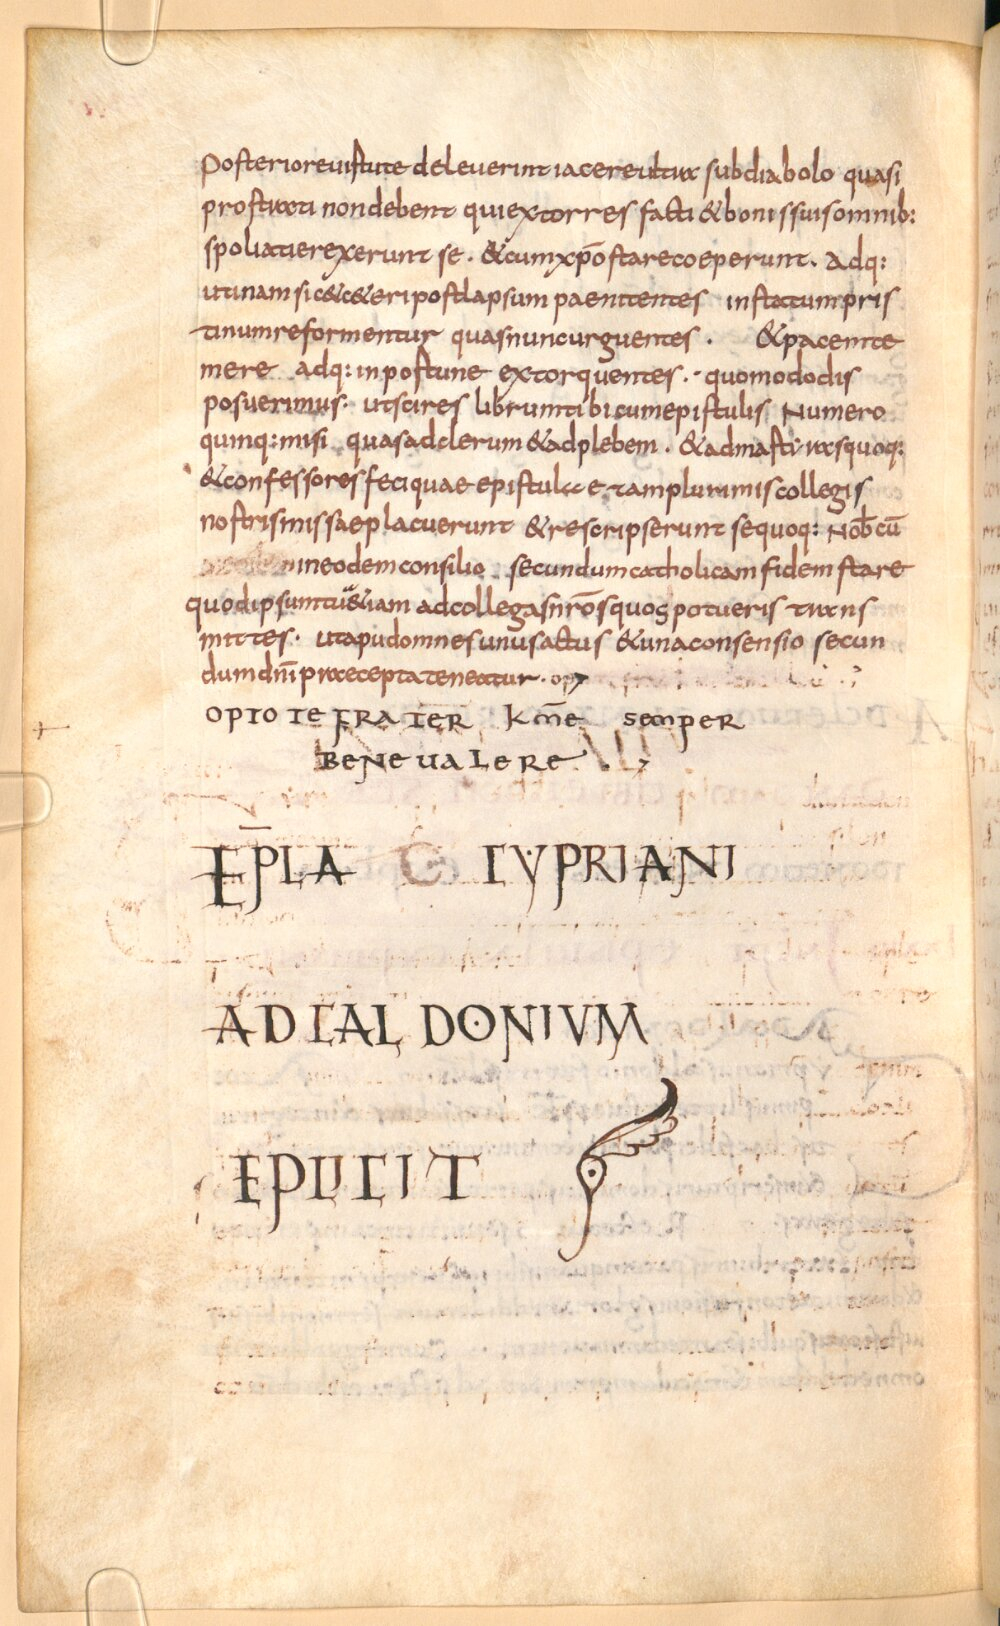 posteriore uirtute deleuerint iacere ultra sub diabolo quasi
prostrati non debent qui extorres facti & bonis suis omnib:
spoliati erexerunt se. & cum xpō stare coeperunt. Adq:
utinam sic & c&eri post lapsum paenitentes in statum pris
tinum reformentur quas nunc urguentes. & pacem te
mere adq: inportune extorquentes. quomodo dis
posuerimus. ut scires librum tibi cum epistulis Numero
quinq: misi quas ad clerum & ad plebem. & ad martyras quoq:
& confessores feci quae epistulae & iam plurimis collegis
nostris missae placuerunt & rescripserunt se quoq: Nobcū
in eodem consilio secundum catholicam fidem stare
quod ipsum tu &iam ad collegas nrōs quos potueris trans
mittes. ut apud omnes unus actus & una consensio secun
dum dnī praecepta teneatur. op
OPTO TE FRATER kmē semper
BENE UALERE
EPLA C CYPRIANI
AD CALDONIUM
EPLICIT